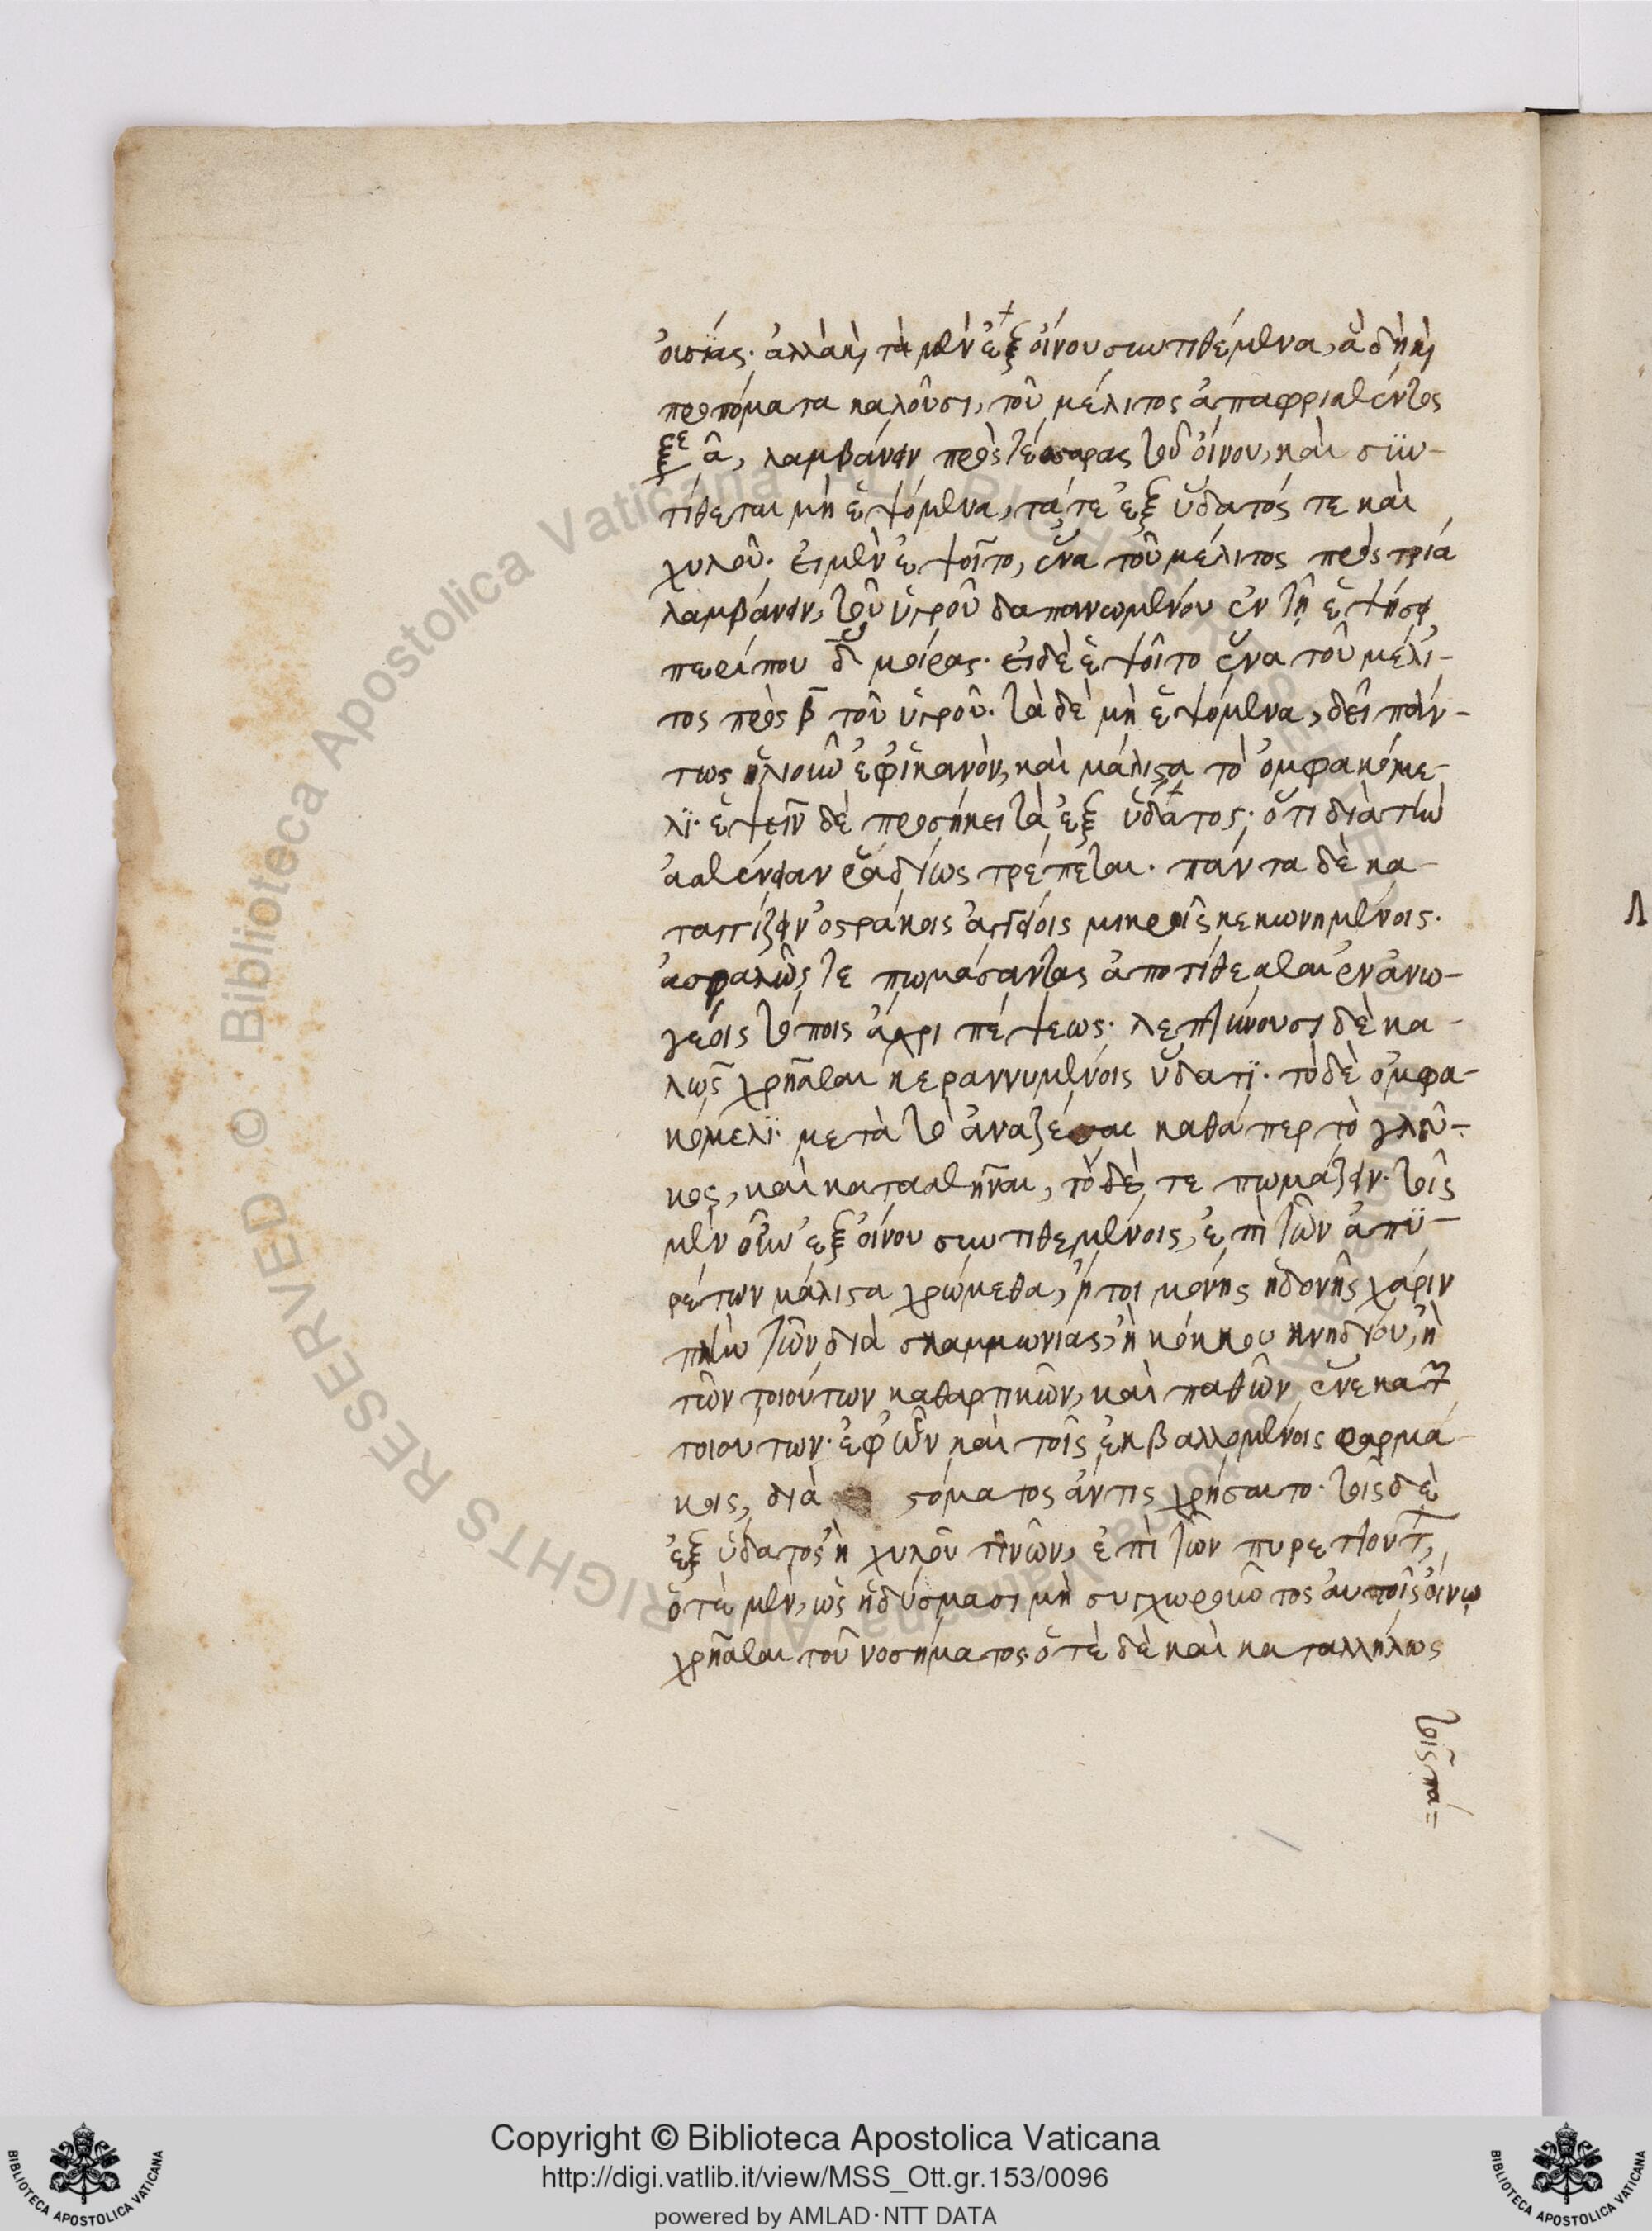 οἰσίας· ἀλλὰ καὶ τὰ μὲν ἐξ οἴνου συντιθέμενα, ἃ δὴ καὶ
προπόματα καλοῦσι, τοῦ μέλιτος ἀπαφρισθέντος
ξε ᾱ, λαμβάνειν πρὸς τέσσαρας τοῦ οἴνου, καὶ συν-
τίθεται μὴ ἑψόμενα, τά τε ἐξ ὕδατός τε καὶ
χυλοῦ· εἰ μὲν ἑψοῖτο, ἕνα τοῦ μέλιτος πρὸς τρία
λαμβάνειν, τοῦ ὑγροῦ δαπανωμένου ἐν τῇ ἑψήσει
περίπου δ μοίρας· εἰ δὲ ἑψοῖτο ἕνα τοῦ μέλι-
τος πρὸς β τοῦ ὑγροῦ· τὰ δὲ μὴ ἑψόμενα, δεῖ πάν-
τως ἡλιοῦν ἐφ' ἱκανὸν, καὶ μάλιστα τὸ ὀμφακόμε-
λϊ· ἑψεῖν δὲ προσήκει τὰ ἐξ ὕδατος· ὅτι διὰ τὴν
ἀσθένειαν ῥᾳδίως τρέπεται· πάντα δὲ κα-
ταγγίζειν ὀστράκοις ἀγγείοις μικροῖς κεκωνημένοις·
ἀσφαλῶς τε πωμάσαντας ἀποτίθεσθαι ἐν ἀνω-
γέοις τόποις ἄχρι πέψεως· λεπτύνουσι δὲ κα-
λῶς χρῆσθαι κεραννυμένοις ὕδατϊ· τὸ δὲ ὀμφα-
κόμελϊ· μετὰ τὸ ἀναζέσαι καθάπερ τὸ γλεῦ-
κος, καὶ κατασθῆναι, τὸ δέ τε πωμάζειν· τοῖς
μὲν οὖν ἐξ οἴνου συντιθεμένοις, ἐπὶ τῶν ἀπϋ-
ρέτων μάλιστα χρώμεθα, ἤτοι μόνης ἡδονῆς χάριν
πλὴν τῶν διὰ σκαμμωνίας, ἢ κόκκου κνηδίου, ἢ
τῶν τοιούτων καθαρτικῶν, καὶ παθῶν ἕνεκα τῶν
τοιούτων· ἐφ' ὧν καὶ τοῖς ἐκβαλλομένοις φαρμά-
κοις, διὰ στόματος ἄν τις χρήσαιτο· τοῖς δὲ
ἐξ ὕδατος ἢ χυλοῦ τινῶν, ἐπὶ τῶν πυρεττόντων,
ὁτὲ μὲν, ὡς ἡδύσμασι μὴ συγχωροῦντος αὐτοῖς οἴνῳ
χρῆσθαι τοῦ νοσήματος· ὁτὲ δὲ καὶ καταλλήλως
τοῖς πά=
Λ
Copyright © Biblioteca Apostolica Vaticana
http://digi.vatlib.it/view/MSS_Ott.gr.153/0096
powered by AMLAD·NTT DATA